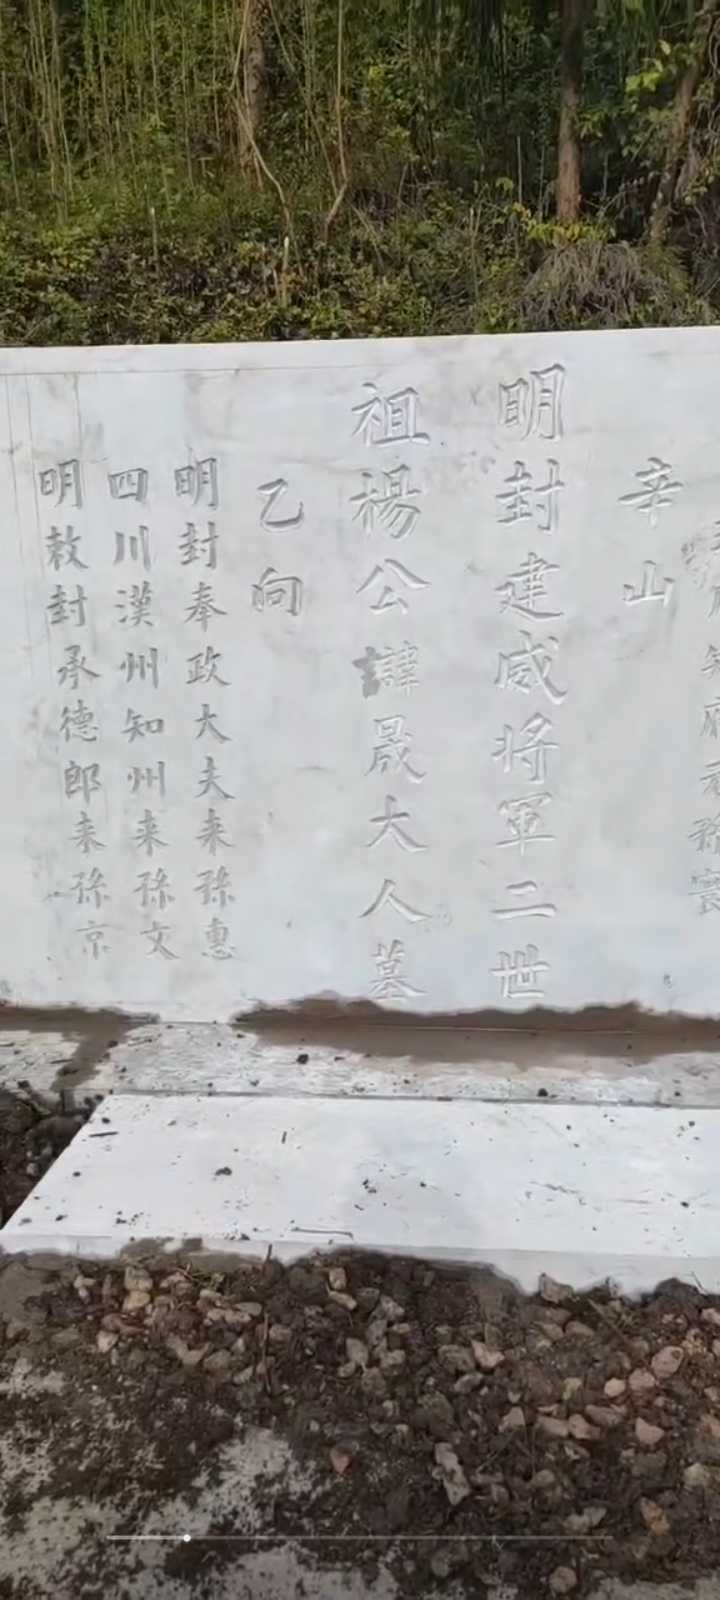 知府來孫寰
辛山
明封建威将軍二世
祖楊公諱晟大人墓
乙向
明封奉政大夫来孫惠
四川漢州知州来孫文
明敕封承德郎来孫京